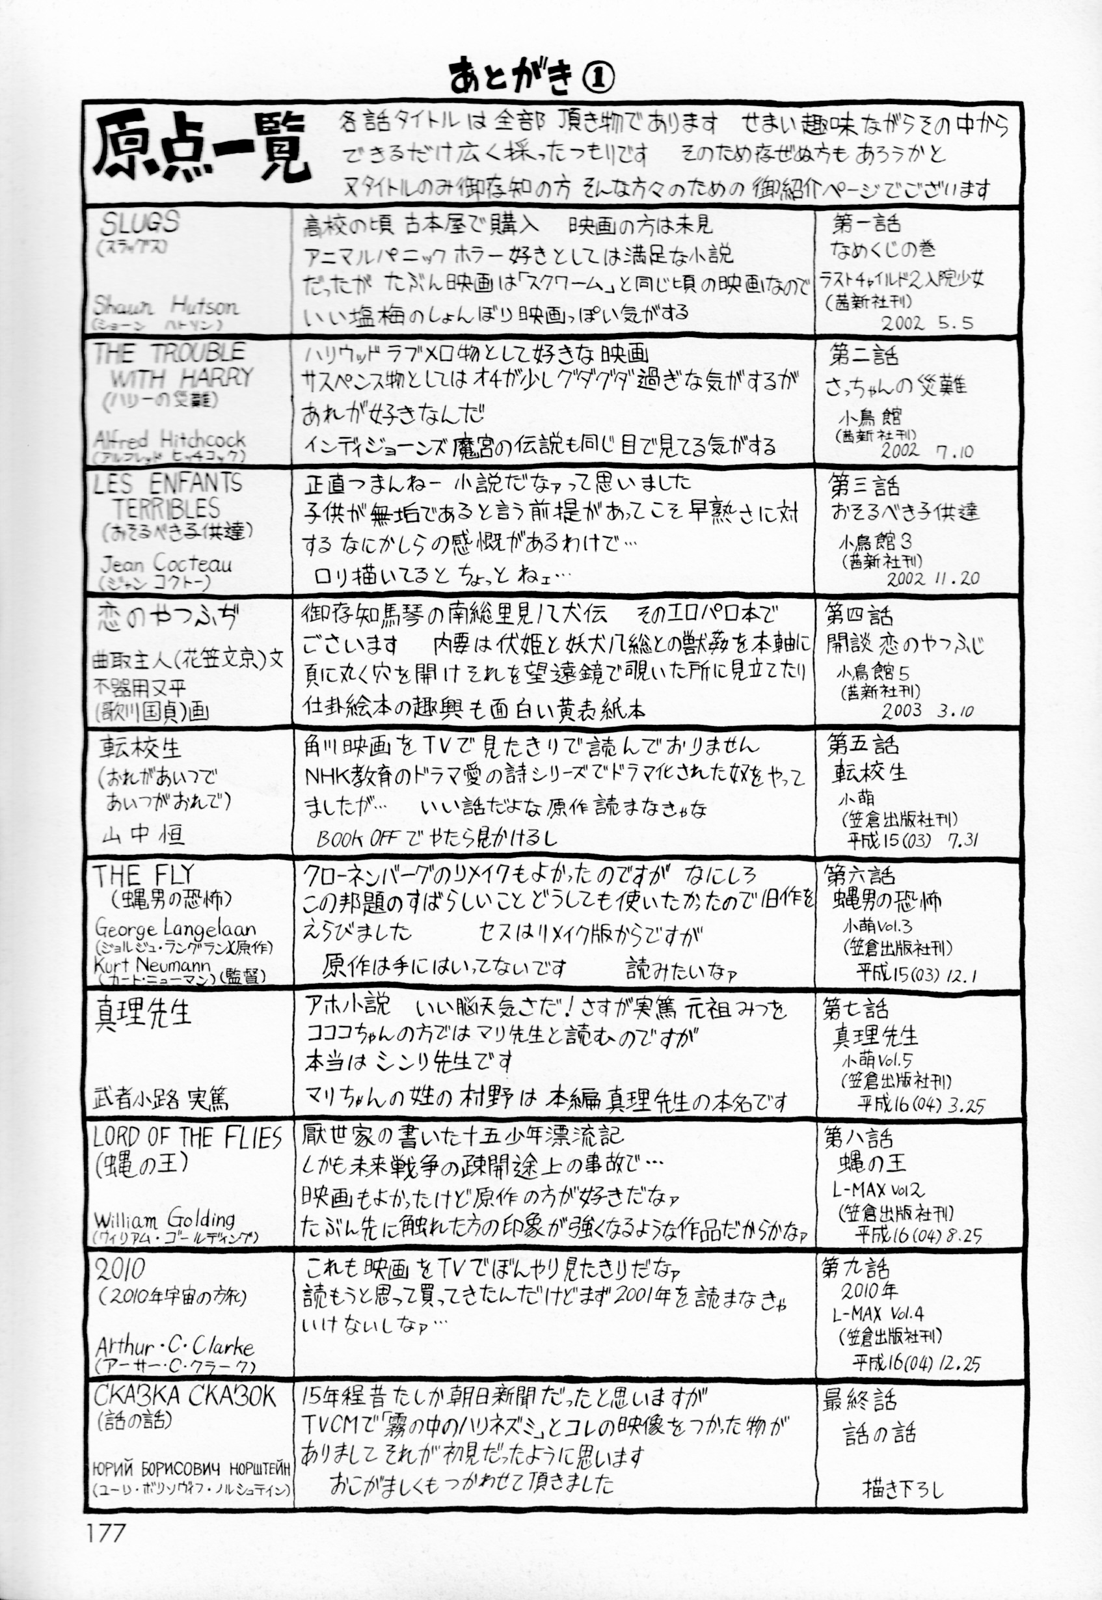 あとがき①
原点一覧
各話タイトルは全部 頂き物であります せまい趣味ながらその中から
できるだけ広く採ったつもりです そのため存ぜぬ方もあろうかと
又タイトルのみ御存知の方 そんな方々のための 御紹介ページでございます
SLUGS
(スラッグス)
Shaun Hutson
(ショーン ハトソン)
高校の頃 古本屋で購入 映画の方は未見
アニマルパニックホラー好きとしては満足な小説
だったが たぶん映画は「スクワーム」と同じ頃の映画なので
いい塩梅のしょんぼり映画っぽい気がする
第一話
なめくじの巻
ラストチャイルド2入院少女
(茜新社刊)
2002 5.5
THE TROUBLE
WITH HARRY
(ハリーの災難)
Alfred Hitchcock
(アルフレッド ヒッチコック)
ハリウッドラブメロ物として好きな映画
サスペンス物としてはオチが少しグダグダ過ぎな気がするが
あれが好きなんだ
インディジョーンズ魔宮の伝説も同じ目で見てる気がする
第二話
さっちゃんの災難
小鳥館
(茜新社刊)
2002 7.10
LES ENFANTS
TERRIBLES
(おそるべき子供達)
Jean Cocteau
(ジャン コクトー)
正直つまんねー小説だなァって思いました
子供が無垢であると言う前提があってこそ早熟さに対
するなにかしらの感慨があるわけで…
ロリ描いてるとちょっとねェ…
第三話
おそるべき子供達
小鳥館3
(茜新社刊)
2002 11.20
恋のやつふぢ
曲取主人(花笠文京)文
不器用又平
(歌川国貞)画
御存知馬琴の南総里見八犬伝 そのエロパロ本で
ございます 内要は伏姫と妖犬八総との獣姦を本軸に
頁に丸く穴を開けそれを望遠鏡で覗いた所に見立てたり
仕掛絵本の趣興も面白い黄表紙本
第四話
開談 恋のやつふじ
小鳥館5
(茜新社刊)
2003 3.10
転校生
(おれがあいつで
あいつがおれで)
山中恒
角川映画をTVで見たきりで読んでおりません
NHK教育のドラマ愛の詩シリーズでドラマ化された奴をやって
ましたが… いい話だよな原作読まなきゃな
BOOK OFFでやたら見かけるし
第五話
転校生
小萌
(笠倉出版社刊)
平成15(03) 7.31
THE FLY
(蝿男の恐怖)
George Langelaan
(ジョルジュ・ランジュラン)(原作)
Kurt Neumann
(カート・ニューマン)(監督)
クローネンバーグのリメイクもよかったのですが なにしろ
この邦題のすばらしいことどうしても使いたかったので旧作を
えらびました セスはリメイク版からですが
原作は手にはいってないです 読みたいなァ
第六話
蝿男の恐怖
小萌Vol.3
(笠倉出版社刊)
平成15(03) 12.1
真理先生
武者小路 実篤
アホ小説 いい脳天気さだ!さすが実篤 元祖みつを
コココちゃんの方ではマリ先生と読むのですが
本当はシンリ先生です
マリちゃんの姓の村野は本編真理先生の本名です
第七話
真理先生
小萌Vol.5
(笠倉出版社刊)
平成16(04) 3.25
LORD OF THE FLIES
(蝿の王)
William Golding
(ウィリアム・ゴールディング)
厭世家の書いた十五少年漂流記
しかも未来戦争の疎開途上の事故で…
映画もよかったけど原作の方が好きだなァ
たぶん先に触れた方の印象が強くなるような作品だからかなァ
第八話
蝿の王
L-MAX Vol2
(笠倉出版社刊)
平成16(04) 8.25
2010
(2010年宇宙の旅)
Arthur・C・Clarke
(アーサー・C・クラーク)
これも映画をTVでぼんやり見たきりだなァ
読もうと思って買ってきたんだけどまず2001年を読まなきゃ
いけないしなァ…
第九話
2010年
L-MAX Vol.4
(笠倉出版社刊)
平成16(04) 12.25
СКАЗКА СКАЗОК
(話の話)
ЮРИЙ БОРИСОВИЧ НОРШТЕЙН
(ユーリ・ボリソヴィチ・ノルシュテイン)
15年程昔たしか朝日新聞だったと思いますが
TVCMで「霧の中のハリネズミ」とコレの映像をつかった物が
ありまして それが初見だったように思います
おこがましくもつかわせて頂きました
最終話
話の話
描き下ろし
177